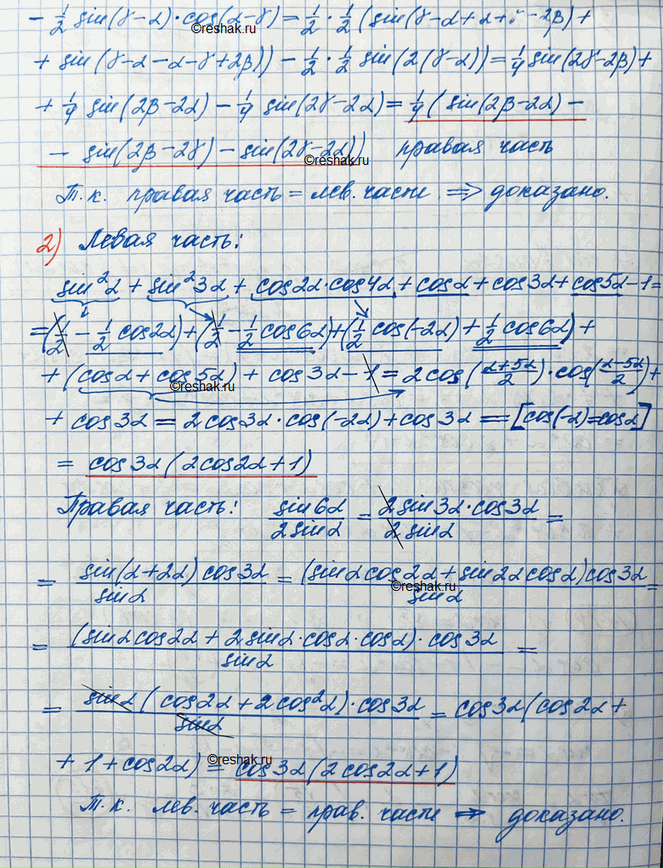 - 1/2 sin(γ-α)·cos(α-γ) = 1/2 · 1/2 (sin(γ-α+α+γ-2β) +
©reshak.ru
+ sin(γ-α-α-γ+2β)) - 1/2 · 1/2 sin(2(γ-α)) = 1/4 sin(2γ-2β) +
+ 1/4 sin(2β-2α) - 1/4 sin(2γ-2α) = 1/4 ( sin(2β-2α) -
- sin(2β-2γ) - sin(2γ-2α)) правая часть
©reshak.ru
Т.к. правая часть = лев. части ⇒ доказано.
2) Левая часть:
sin²α + sin²3α + cos2α·cos4α + cosα + cos3α + cos5α - 1 =
= (1/2 - 1/2 cos2α) + (1/2 - 1/2 cos6α) + (1/2 cos(-2α) + 1/2 cos6α) +
+ (cosα + cos5α) + cos3α - 1 = 2cos((α+5α)/2)·cos((α-5α)/2) +
©reshak.ru
+ cos3α = 2cos3α·cos(-2α) + cos3α = [cos(-α)=cosα]
= cos3α(2cos2α+1)
Правая часть: sin6α/2sinα = 2sin3α·cos3α/2sinα =
= sin(α+2α)cos3α/sinα = (sinαcos2α+sin2αcosα)cos3α/sinα =
©reshak.ru
= (sinαcos2α + 2sinα·cosα·cosα)·cos3α/sinα =
= sinα(cos2α+2cos²α)·cos3α/sinα = cos3α(cos2α+
+ 1 + cos2α) = cos3α(2cos2α+1)
©reshak.ru
Т.к. лев. часть = прав. части ⇒ доказано.